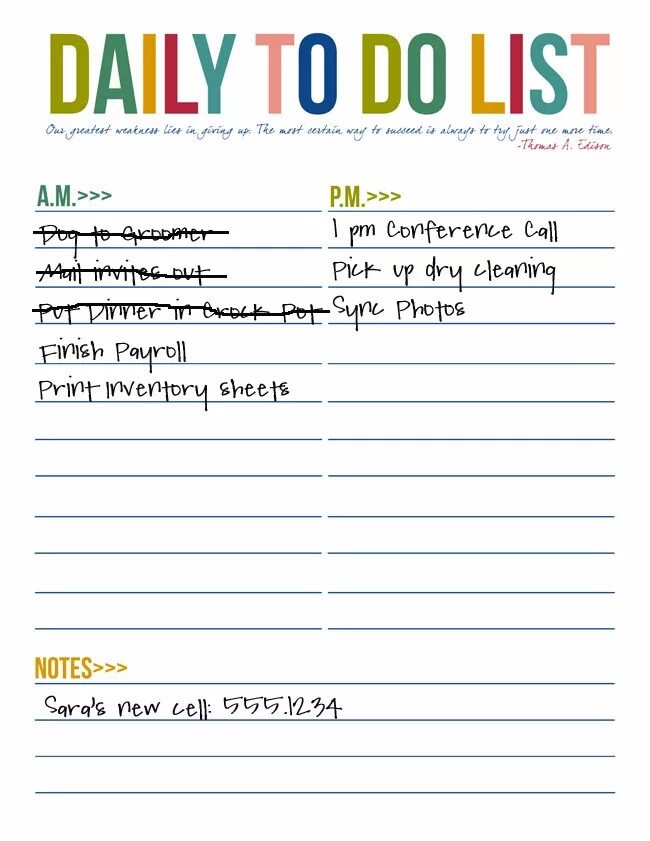 DAILY TO DO LIST
Our greatest weakness lies in giving up. The most certain way to succeed is always to try just one more time.
-Thomas A. Edison
A.M.>>>
Dog to Groomer
Mail invites out
Put Dinner in Crock Pot
Finish Payroll
Print Inventory sheets
P.M.>>>
1 pm Conference Call
Pick up dry cleaning
Sync Photos
NOTES>>>
Sara's new cell: 555.1234